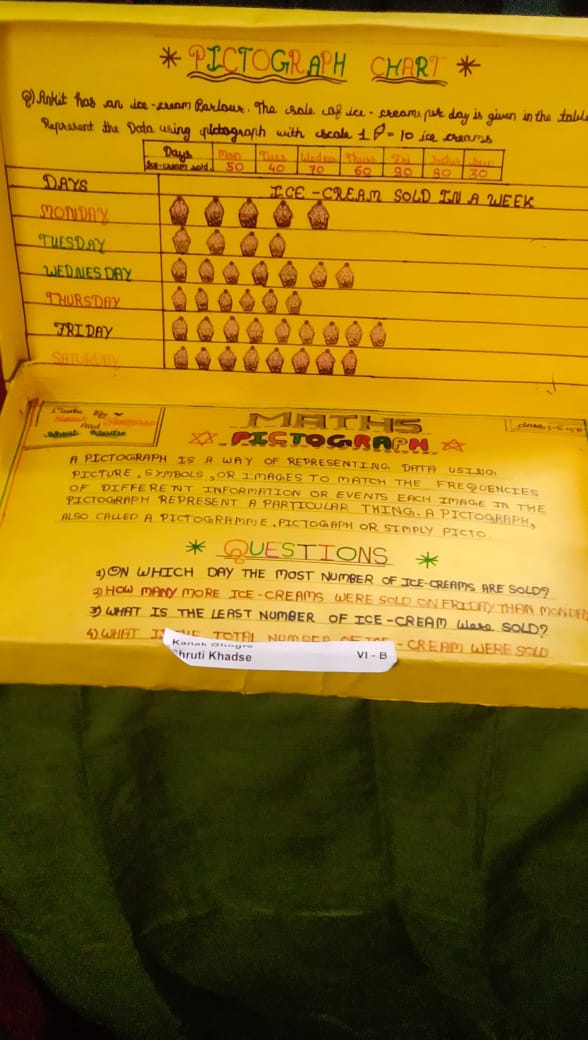 * PICTOGRAPH CHART *
Q) Ankit has an ice-cream Parlour. The sale of ice-creams per day is given in the table
Represent the Data using pictograph with scale 1 = 10 ice creams
Days Mon Tues Wednes Thurs Fri Sun
Ice-cream sold. 50 40 70 60 90 80 30
DAYS ICE-CREAM SOLD IN A WEEK
MONDAY
TUESDAY
WEDNESDAY
THURSDAY
FRIDAY
SATURDAY
Made By
And
Shruti Khadse
MATHS
PICTOGRAPH
A PICTOGRAPH IS A WAY OF REPRESENTING DATA USING
PICTURE, SYMBOLS, OR IMAGES TO MATCH THE FREQUENCIES
OF DIFFERENT INFORMATION OR EVENTS EACH IMAGE IN THE
PICTOGRAPH REPRESENT A PARTICULAR THING. A PICTOGRAPH,
ALSO CALLED A PICTOGRAMME, PICTOGAPH OR SIMPLY PICTO.
* QUESTIONS *
1) ON WHICH DAY THE MOST NUMBER OF ICE-CREAMS ARE SOLD?
2) HOW MANY MORE ICE-CREAMS WERE SOLD ON FRIDAY THAN MONDAY
3) WHAT IS THE LEAST NUMBER OF ICE-CREAM were SOLD?
4) WHAT IS THE TOTAL NUMBER OF ICE-CREAM WERE SOLD
Shruti Khadse VI - B